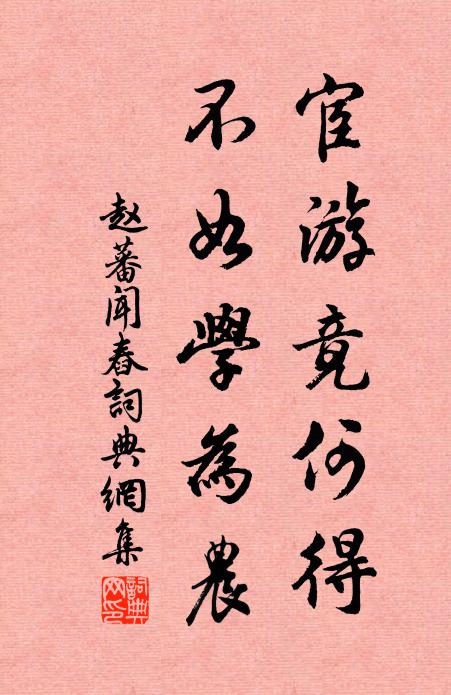 宦游竟何得
不如學為農
赵蕃闻舂詞典網集
詞典
网印